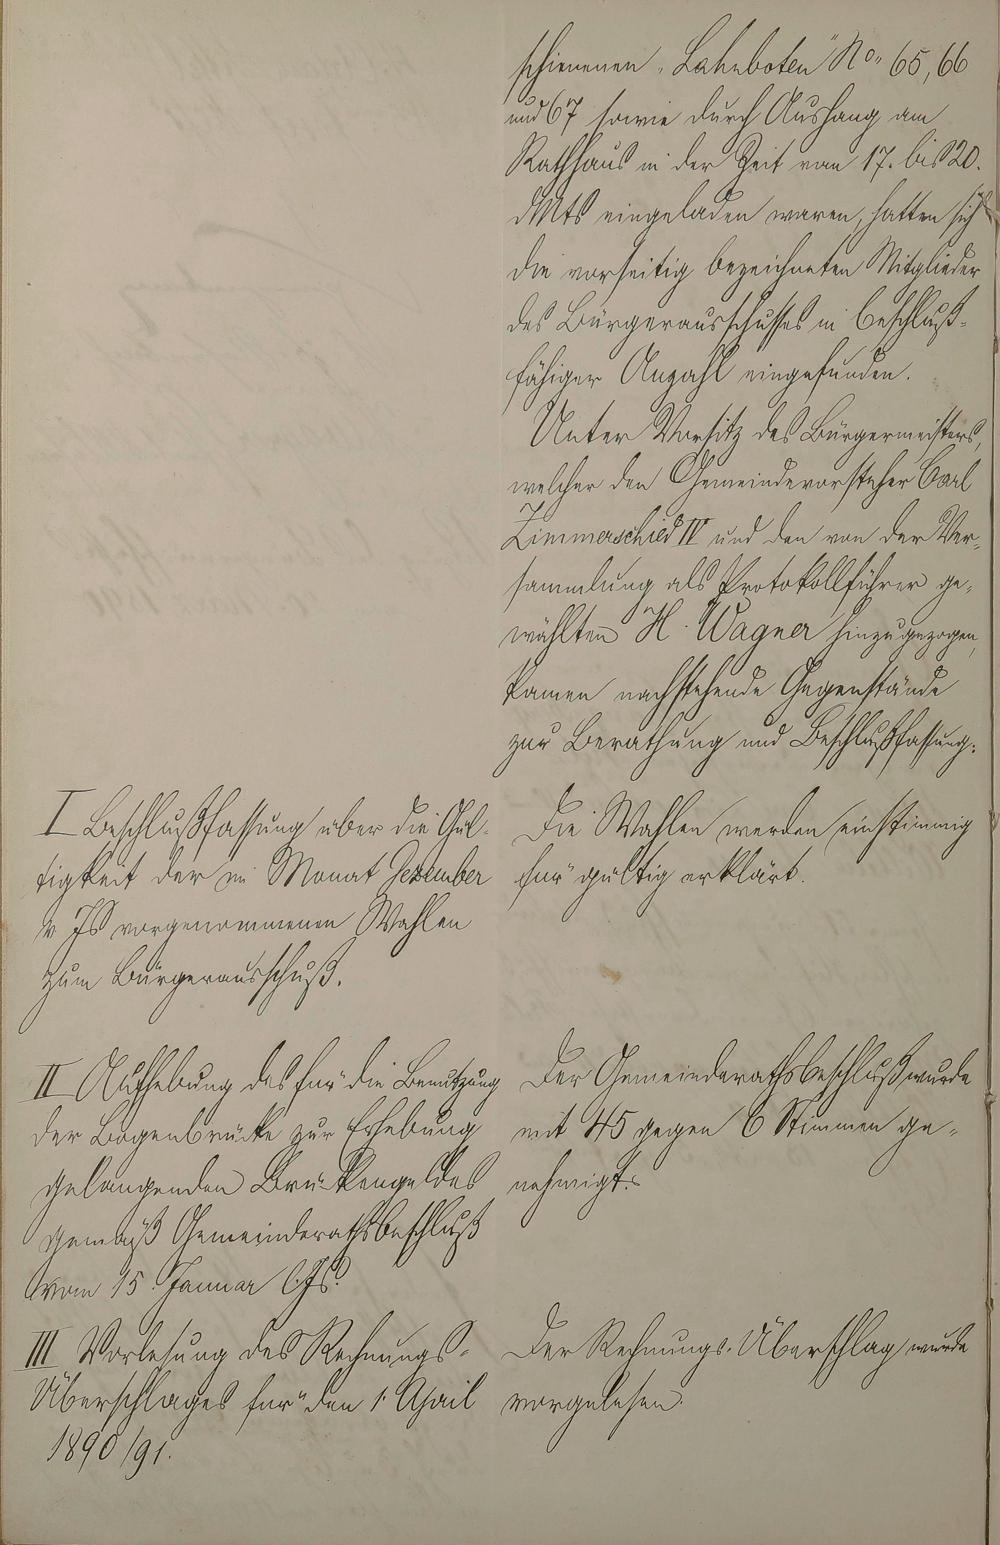 schienenen „Lahnboten“ No. 65, 66
und 67 sowie durch Aushang am
Rathhaus in der Zeit vom 17. bis 20.
dMts eingeladen waren, hatten sich
die vorseitig bezeichneten Mitglieder
des Bürgerausschusses in beschluß-
fähiger Anzahl eingefunden.
Unter Vorsitz des Bürgermeisters,
welcher den Gemeindevorsteher Carl
Zimmerschied IV und den von der Ver-
sammlung als Protokollführer ge-
wählten H. Wagner hinzugezogen,
kamen nachstehende Gegenstände
zur Berathung und Beschlußfassung:
I Beschlußfassung über die Gül-
tigkeit der im Monat Dezember
v Js vorgenommenen Wahlen
zum Bürgerausschuß.
Die Wahlen werden einstimmig
für gültig erklärt.
II Aufhebung des für die Benutzung
der Bogenbrücke zur Erhebung
gelangenden Brückengeldes
gemäß Gemeinderathsbeschluß
vom 15. Januar l. Js.
Der Gemeinderathsbeschluß wurde
mit 45 gegen 6 Stimmen ge-
nehmigt.
III Vorlesung des Rechnungs-
Überschlages für den 1. April
1890/91.
Der Rechnungs-Überschlag wurde
vorgelesen.